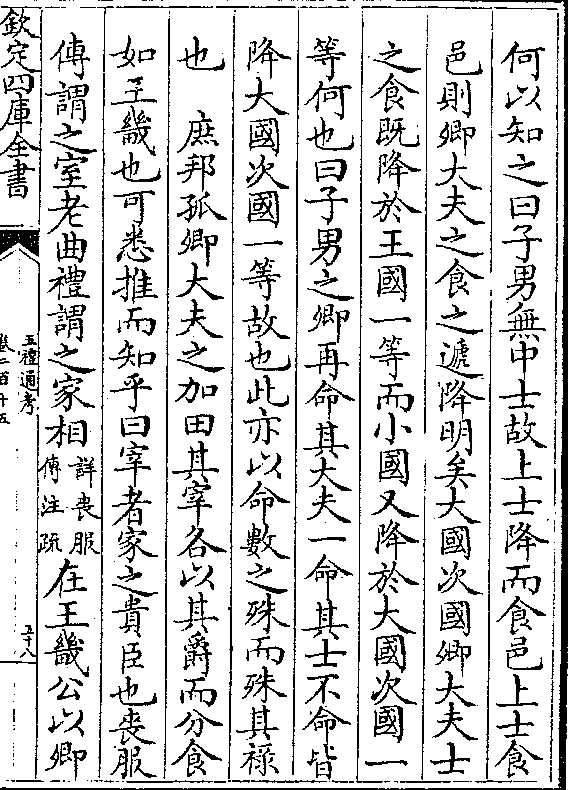 何以知之曰子男無中士故上士降而食邑上士食
邑則卿大夫之食之遞降明矣大國次國卿大夫士
之食既降於王國一等而小國又降於大國次國一
等何也曰子男之卿再命其大夫一命其士不命皆
降大國次國一等故也此亦以命數之殊而殊其祿
也　庶邦孤卿大夫之加田其宰各以其爵而分食
如王畿也可悉推而知乎曰宰者家之貴臣也喪服
傳謂之室老曲禮謂之家相詳喪服傳注疏在王畿公以卿
欽定四庫全書
五禮通考
卷二百十五
五十八